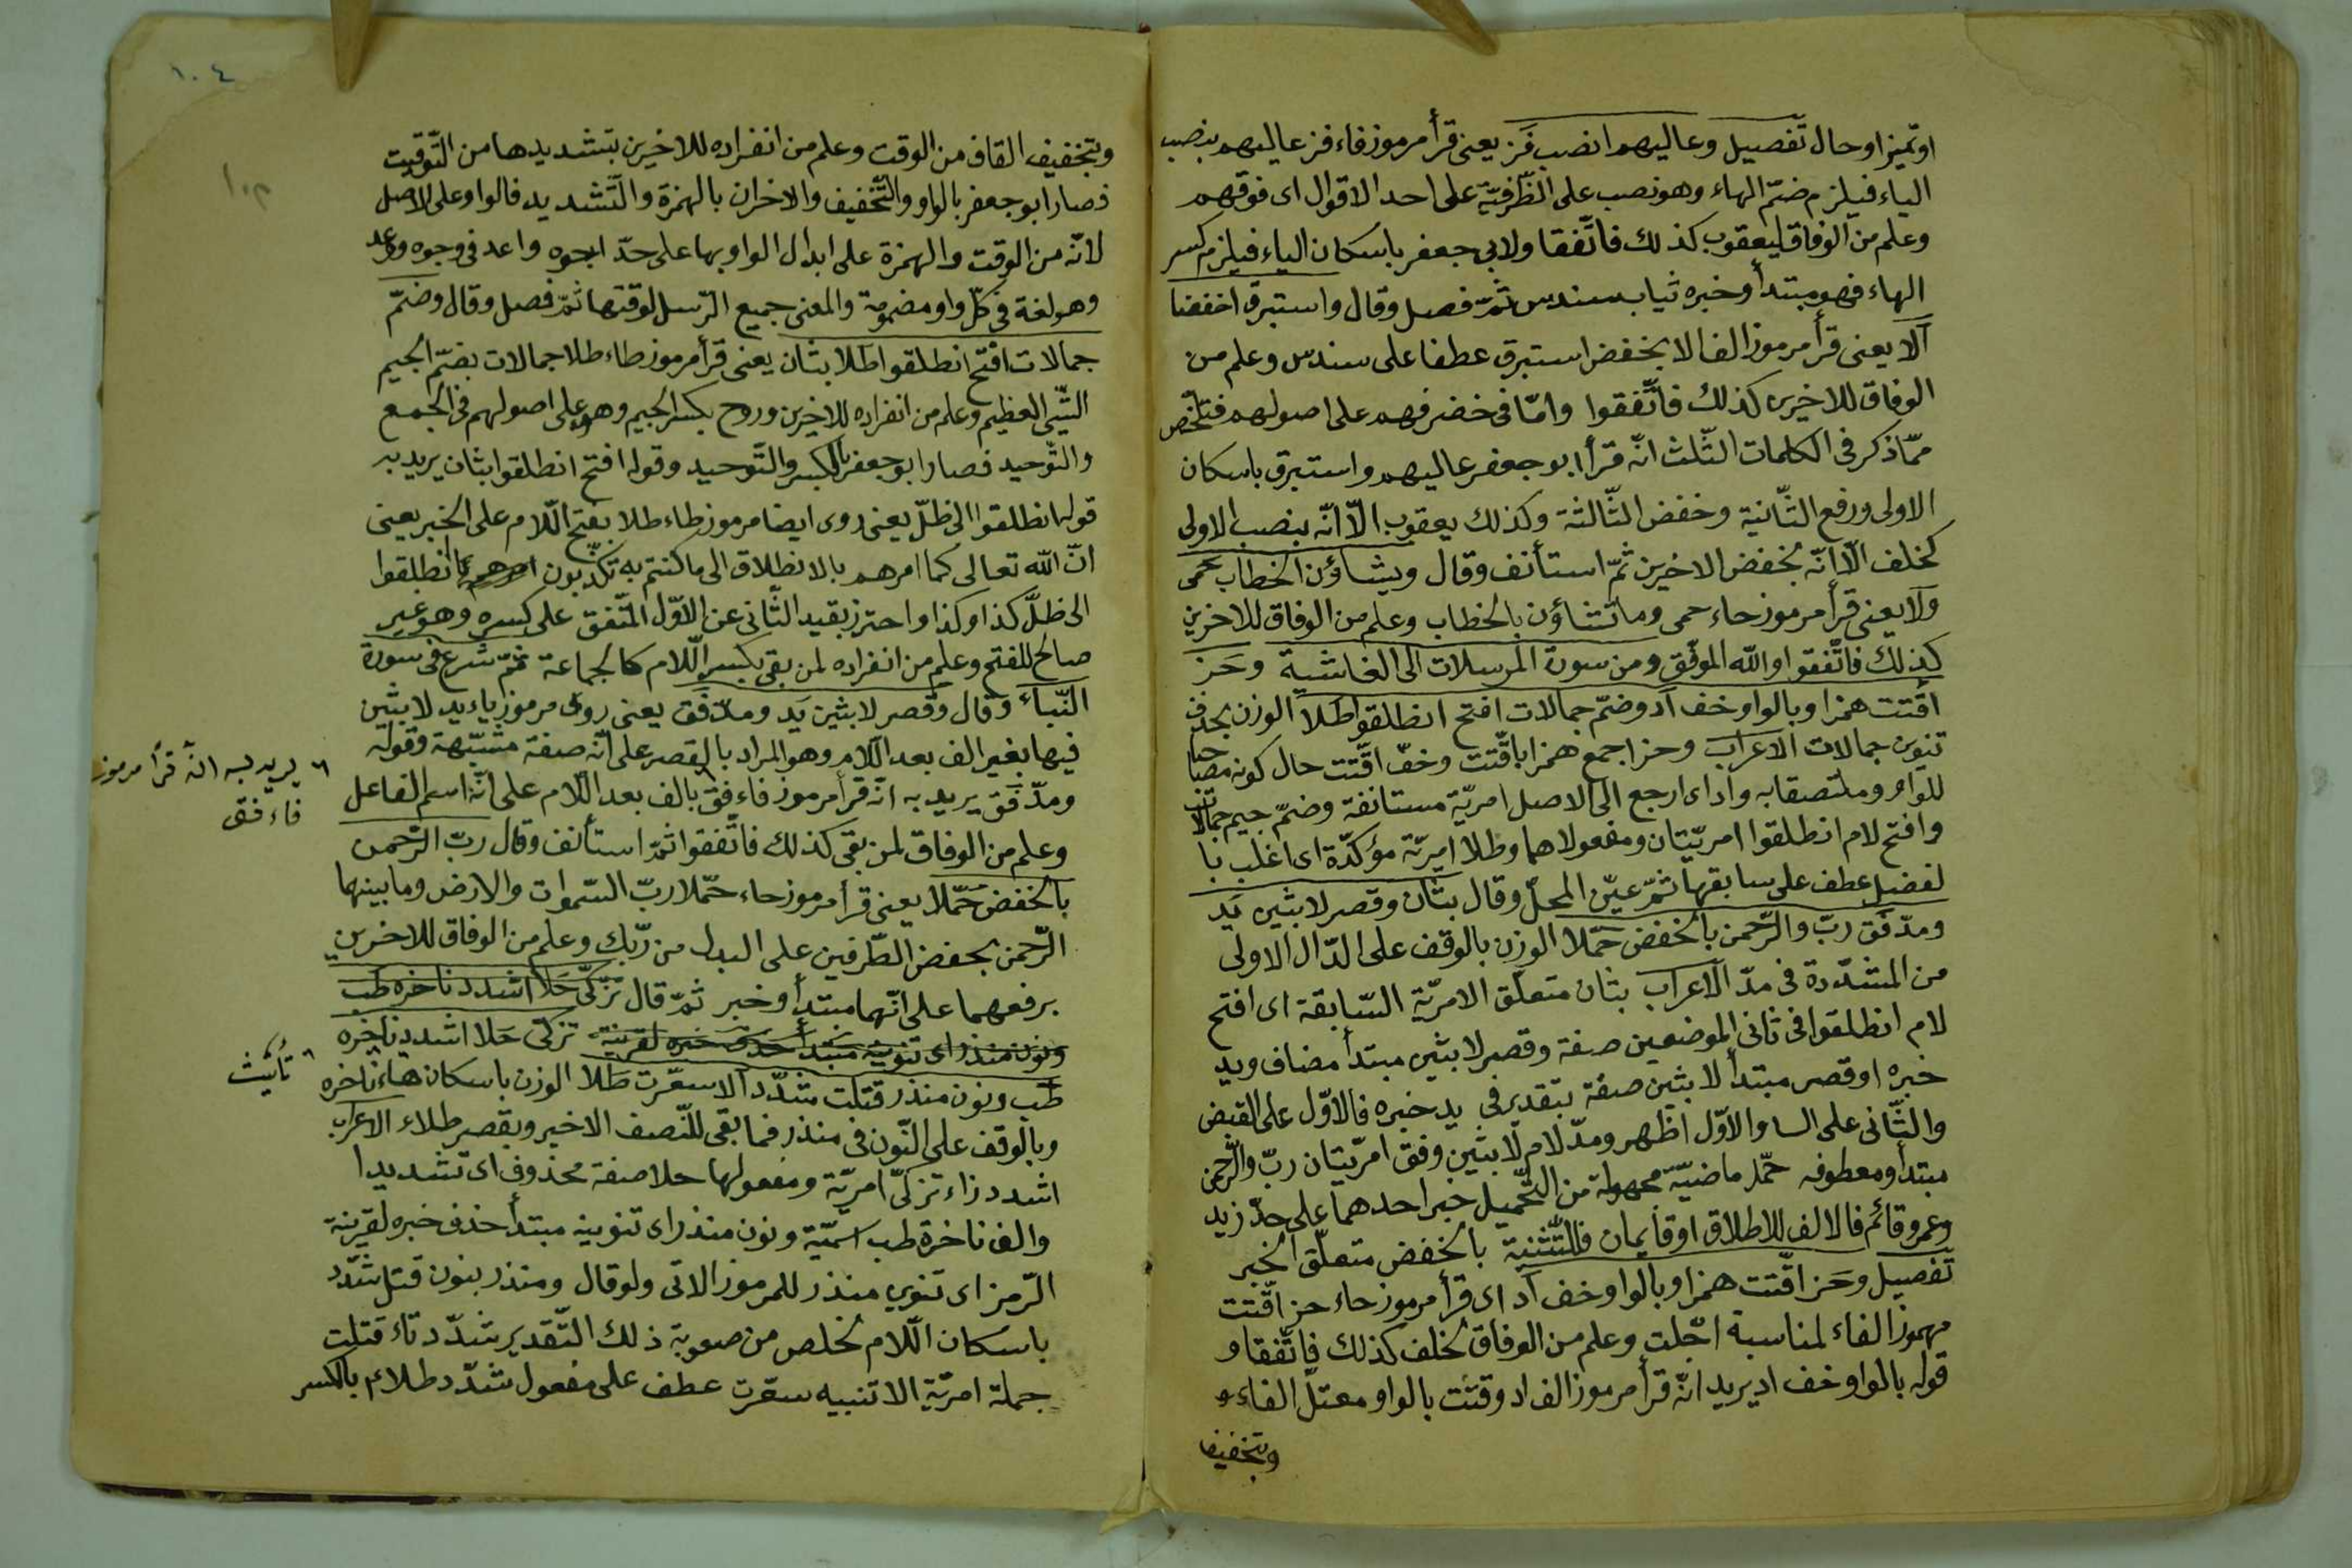 او تميزا وحال تفصيل وعاليهم انصب فز يعنى قرأ مرموز فاء فز عاليهم بنصب
الياء فيلزم ضمّ الهاء وهو نصب على الظّرفيّة على احد الاقوال اى فوقهم
وعلم من الوفاق ليعقوب كذلك فاتّفقا ولابى جعفر باسكان الياء فيلزم كسر
الهاء فهو مبتدأ وخبره ثياب سندس ثمّ فصل وقال واستبرق اخفضا
آلا يعنى قرأ مرموز الف الا بخفض استبرق عطفا على سندس وعلم من
الوفاق للاخيرين كذلك فاتّفقوا وامّا فى خضر فهم على اصولهم فتلخّص
ممّا ذكر فى الكلمات الثّلث انّه قرأ ابو جعفر عاليهم واستبرق باسكان
الاولى ورفع الثّانية وخفض الثّالثة وكذلك يعقوب الّا انّه بنصب الاولى
كخلف الّا انّه بخفض الاخيرين ثمّ استأنف وقال ويشاؤن الخطاب حمى
ولا يعنى قرأ مرموز حاء حمى وما تشاؤن بالخطاب وعلم من الوفاق للاخرين
كذلك فاتّفقوا والله الموفّق ومن سورة المرسلات الى الغاشية وحز
اقّتت همزا وبالواو خف اد وضمّ جمالات افتح انطلقوا طلا الوزن بحذف
تنوين جمالات الاعراب وحز اجمع همزا باقّتت وخفّ اقّتت حال كونه مصاحبا
للواو وملتصقا به واد اى ارجع الى الاصل امريّة مستانفة وضمّ جيم جمالات
وافتح لام انطلقوا امريّتان ومفعولاهما وطلا امريّة مؤكدّة اى اغلب با
لفضل عطف على سابقها ثمّ عيّن المحلّ وقال بثان وقصر لابثين يد
ومدّ فق ربّ والرّحمن بالخفض حمّلا الوزن بالوقف على الدّال الاولى
من المشدّدة فى مدّ الاعراب بثان متعلّق الامريّة السّابقة اى افتح
لام انطلقوا فى ثانى الموضعين صفة وقصر لابثين مبتدأ مضاف ويد
خبره او قصر مبتدأ لابثين صفة بتقدير فى يد خبره فالاوّل على القبض
والثّانى على السا والاوّل اظهر ومدّ لام لابثين وفق امريّتان ربّ والرّحمن
مبتدأ ومعطوفه حمّلا ماضيّة مجهولة من التّحميل خبر احدهما على حدّ زيد
وعمرو قائم فالالف للاطلاق او قايمان فللتّثنية بالخفض متعلّق الخبر
تفصيل وحز اقّتت همزا وبالواو خف اد اى قرأ مرموز حاء حز اقّتت
مهموز الفاء لمناسبة اجّلت وعلم من الوفاق لخلف كذلك فاتّفقا و
قوله بالواو خف اد يريد انّه قرأ مرموز الف اد وقتت بالواو معتلّ الفاء و
وبتخفيف
١٠٤
وبتخفيف القاف من الوقت وعلم من انفراده للاخرين بتشديدها من التّوقيت
فصار ابو جعفر بالواو والتّخفيف والاخران بالهمزة والتّشديد فالواو على الاصل
لانّه من الوقت والهمزة على ابدال الواو بها على حدّ اجوه واعد فى وجوه وعد
وهو لغة فى كلّ واو مضمومة والمعنى جميع الرّسل لوقتها ثمّ فصل وقال وضمّ
جمالات افتح انطلقوا طلا بثان يعنى قرأ مرموز طاء طلا جمالات بضمّ الجيم
الشّئ العظيم وعلم من انفراده للاخرين وروح بكسر الجيم وهو على اصولهم فى الجمع
والتّوحيد فصار ابو جعفر بالكسر والتّوحيد وقوله افتح انطلقوا بثان يريد به
قوله انطلقوا الى ظلّ يعنى روى ايضا مرموز طاء طلا بفتح اللّام على الخبر يعنى
انّ الله تعالى كما امرهم بالانطلاق الى ما كنتم به تكذّبون انطلقوا
الى ظلّ كذا وكذا واحترز بقيد الثّانى عن الاوّل المتّفق على كسره وهو غير
صالح للفتح وعلم من انفراده لمن بقى بكسر اللّام كالجماعة ثمّ شرع فى سورة
النّبأ وقال وقصر لابثين يد ومدّ فق يعنى روى مرموز ياء يد لابثين
فيها بغير الف بعد اللّام وهو المراد بالقصر على انّه صفة مشبّهة وقوله
ومدّ فق يريد به انّه قرأ مرموز فاء فق بالف بعد اللّام على انّه اسم الفاعل
يريد به انّه قرأ مرموز
فاء فق
وعلم من الوفاق لمن بقى كذلك فاتّفقوا ثمّ استأنف وقال ربّ الرّحمن
بالخفض حمّلا يعنى قرأ مرموز حاء حمّلا ربّ السّموات والارض وما بينهما
الرّحمن بخفض الطّرفين على البدل من ربّك وعلم من الوفاق للاخرين
برفعهما على انّهما مبتدأ وخبر ثمّ قال تزّكّى حلا اشدد ناخره طب
ونون منذر اى تنوينه مبتدأ حذف خبره لقرينة تزكّى حلا اشدد ناخره
طب ونون منذر قتلت شدّد الا سعّرت طلا الوزن باسكان هاء ناخره
تأنيث
وبالوقف على النّون فى منذر فما بقى للنّصف الاخير وبقصر طلاء الاعراب
اشدد زاء تزكّى امريّة ومفعولها حلا صفة محذوف اى تشديدا
والف ناخرة طب اسميّة ونون منذر اى تنوينه مبتدأ حذف خبره لقرينة
الرّمز اى تنوين منذر للمرموز الاتى ولو قال ومنذر بنون قتل شدّد
باسكان اللّام لخلص من صعوبة ذلك التّقدير شدّد تاء قتلت
جملة امريّة الا تنبيه سعّرت عطف على مفعول شدّد طلاء بالكسر